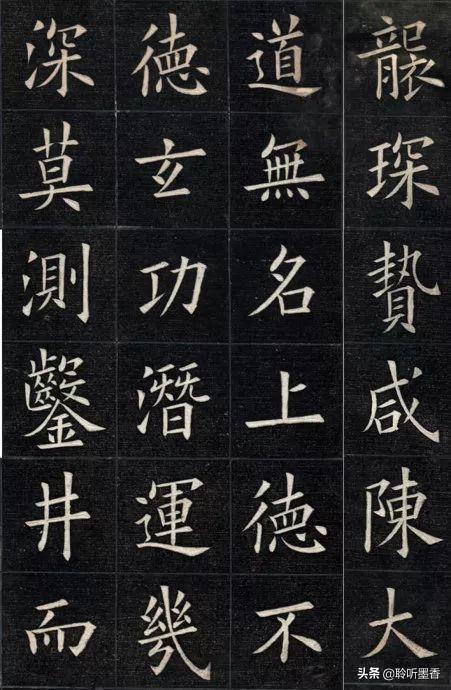 襲琛贄咸陳大
道無名上德不
德玄功潛運幾
深莫測鑿井而
头条 @聆听墨香